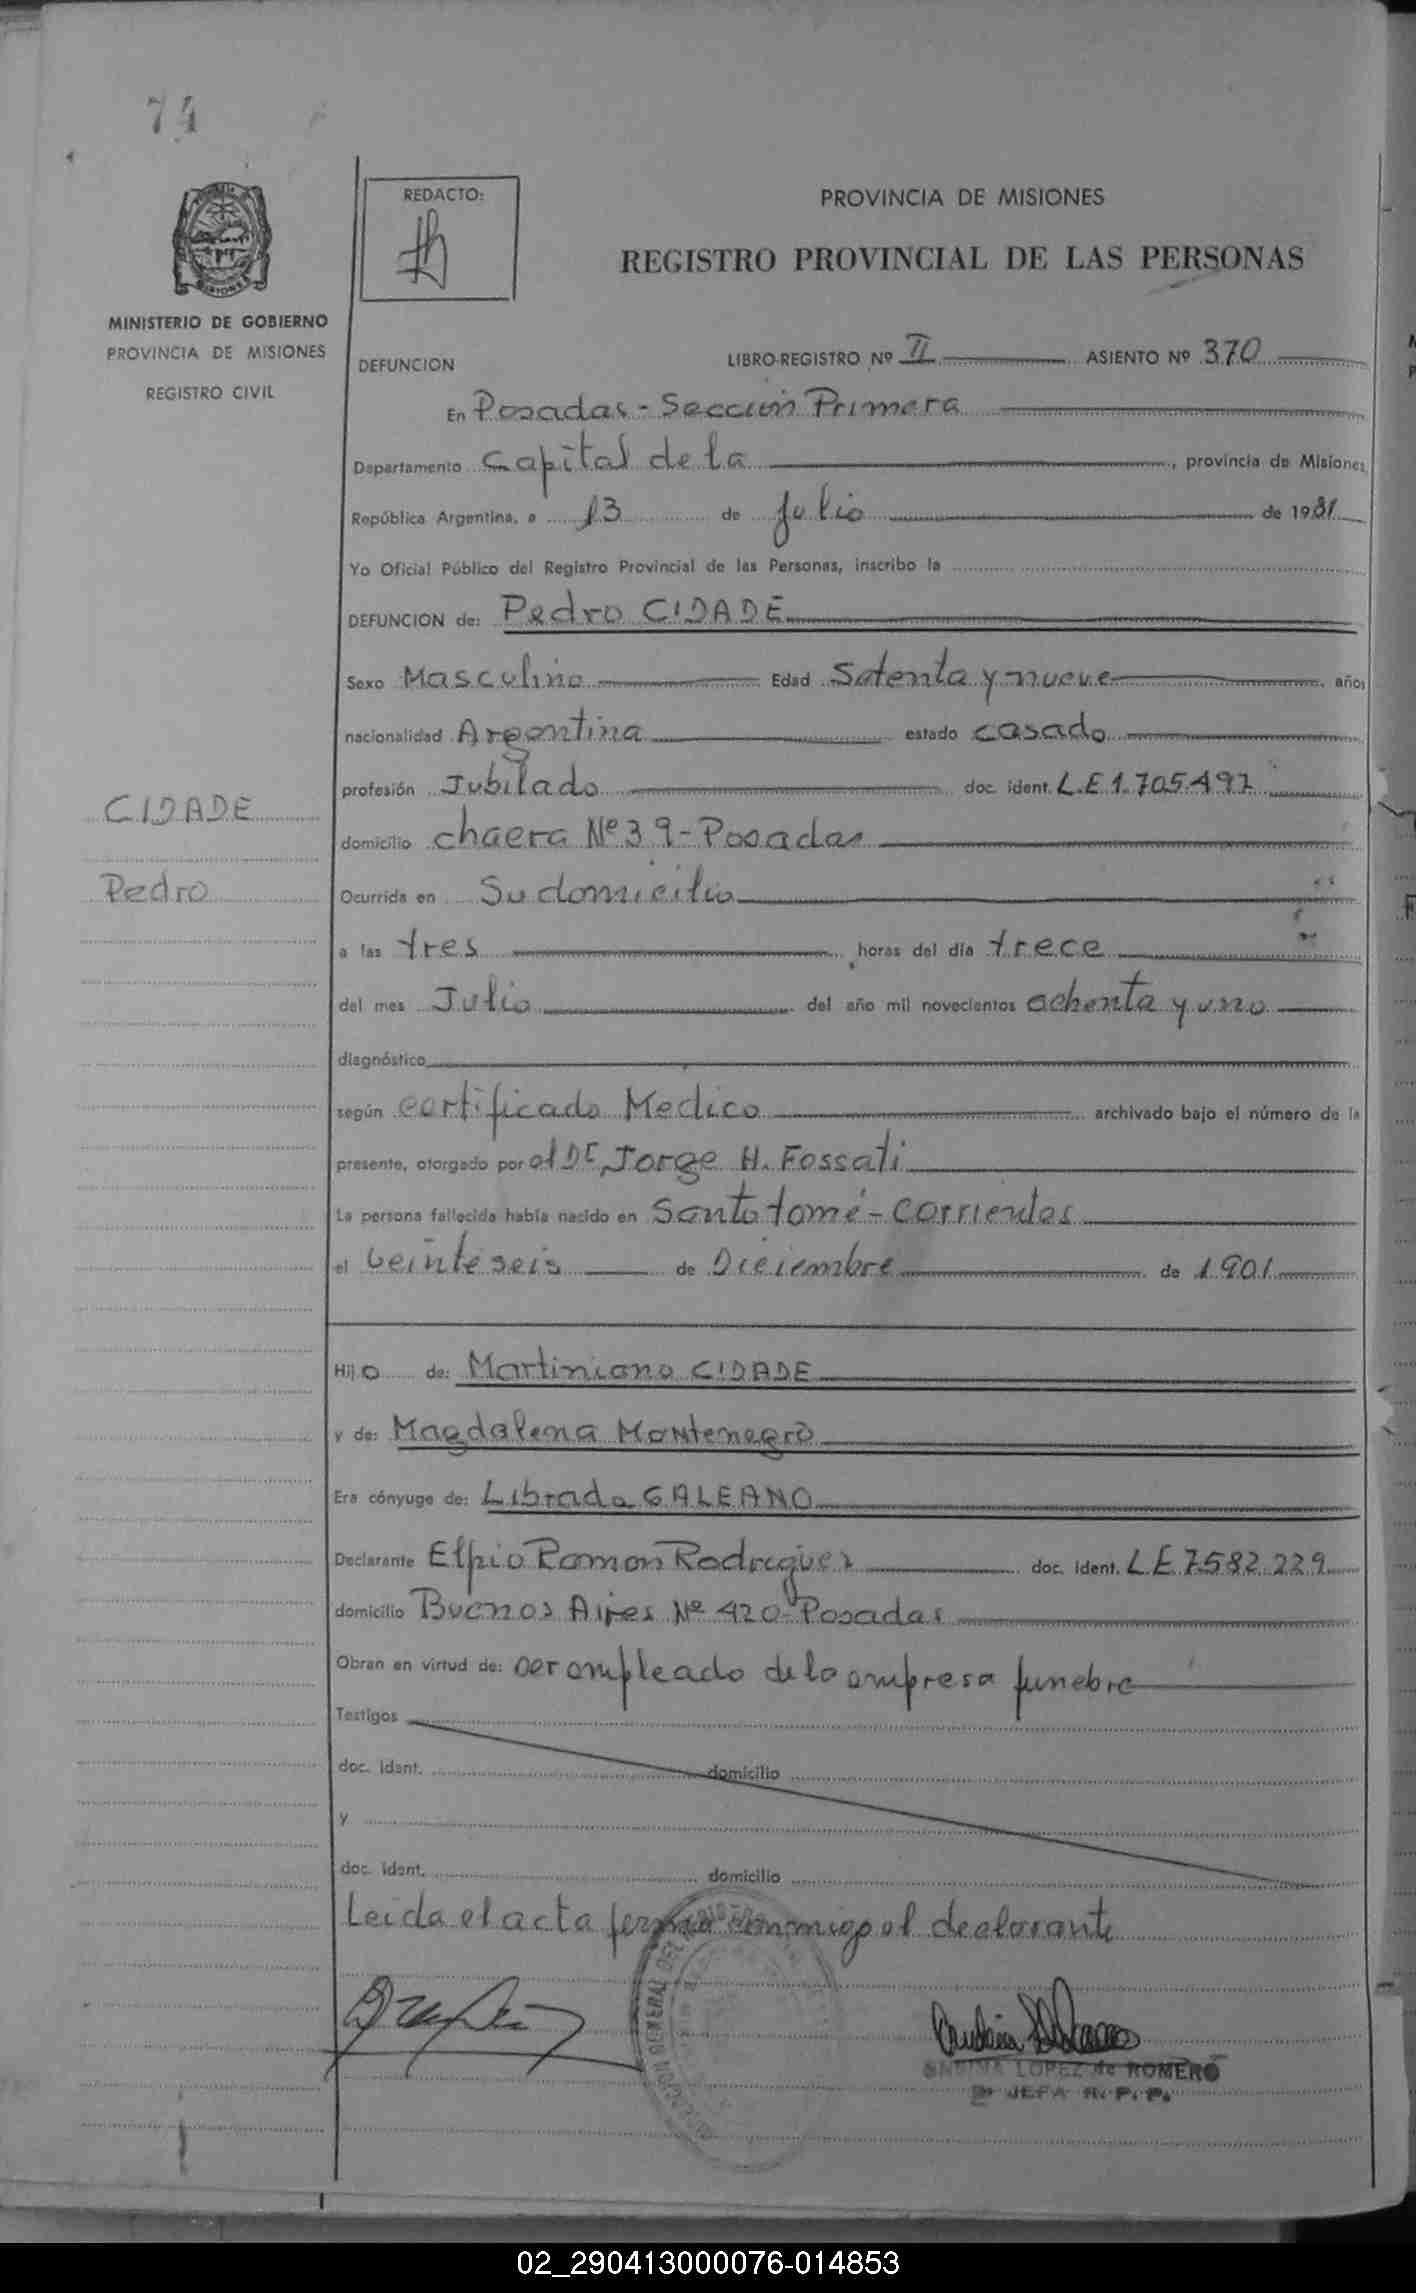 74
REDACTO:
PROVINCIA DE MISIONES
REGISTRO PROVINCIAL DE LAS PERSONAS
MINISTERIO DE GOBIERNO
PROVINCIA DE MISIONES
REGISTRO CIVIL
DEFUNCION LIBRO-REGISTRO Nº II ASIENTO Nº 370
En Posadas - Sección Primera
Departamento Capital de la, provincia de Misiones
República Argentina, a 13 de Julio de 1981
Yo Oficial Público del Registro Provincial de las Personas, inscribo la
DEFUNCION de: Pedro CIDADE
Sexo Masculino Edad Setenta y nueve años
nacionalidad Argentina estado casado
profesión Jubilado doc. ident. L.E 1.705.497
CIDADE
Pedro
domicilio chacra Nº 39 - Posadas
Ocurrida en Su domicilio
a las tres horas del día trece
del mes Julio del año mil novecientos ochenta y uno
diagnóstico
según certificado Medico archivado bajo el número de la
presente, otorgado por el Dr. Jorge H. Fossati
La persona fallecida había nacido en Santo tomé - Corrientes
el veintiseis de Diciembre de 1901
Hijo de: Martiniano CIDADE
y de: Magdalena Montenegro
Era cónyuge de: Librada GALEANO
Declarante Elpio Ramon Rodriguez doc. ident. L E 7.582.229
domicilio Buenos Aires Nº 420 - Posadas
Obran en virtud de: ser empleado de la empresa funebre
Testigos
doc. ident. domicilio
y
doc. ident. domicilio
Leida el acta firma conmigo el declarante
LOPEZ de ROMERO
JEFA R. P. P.
02_290413000076-014853